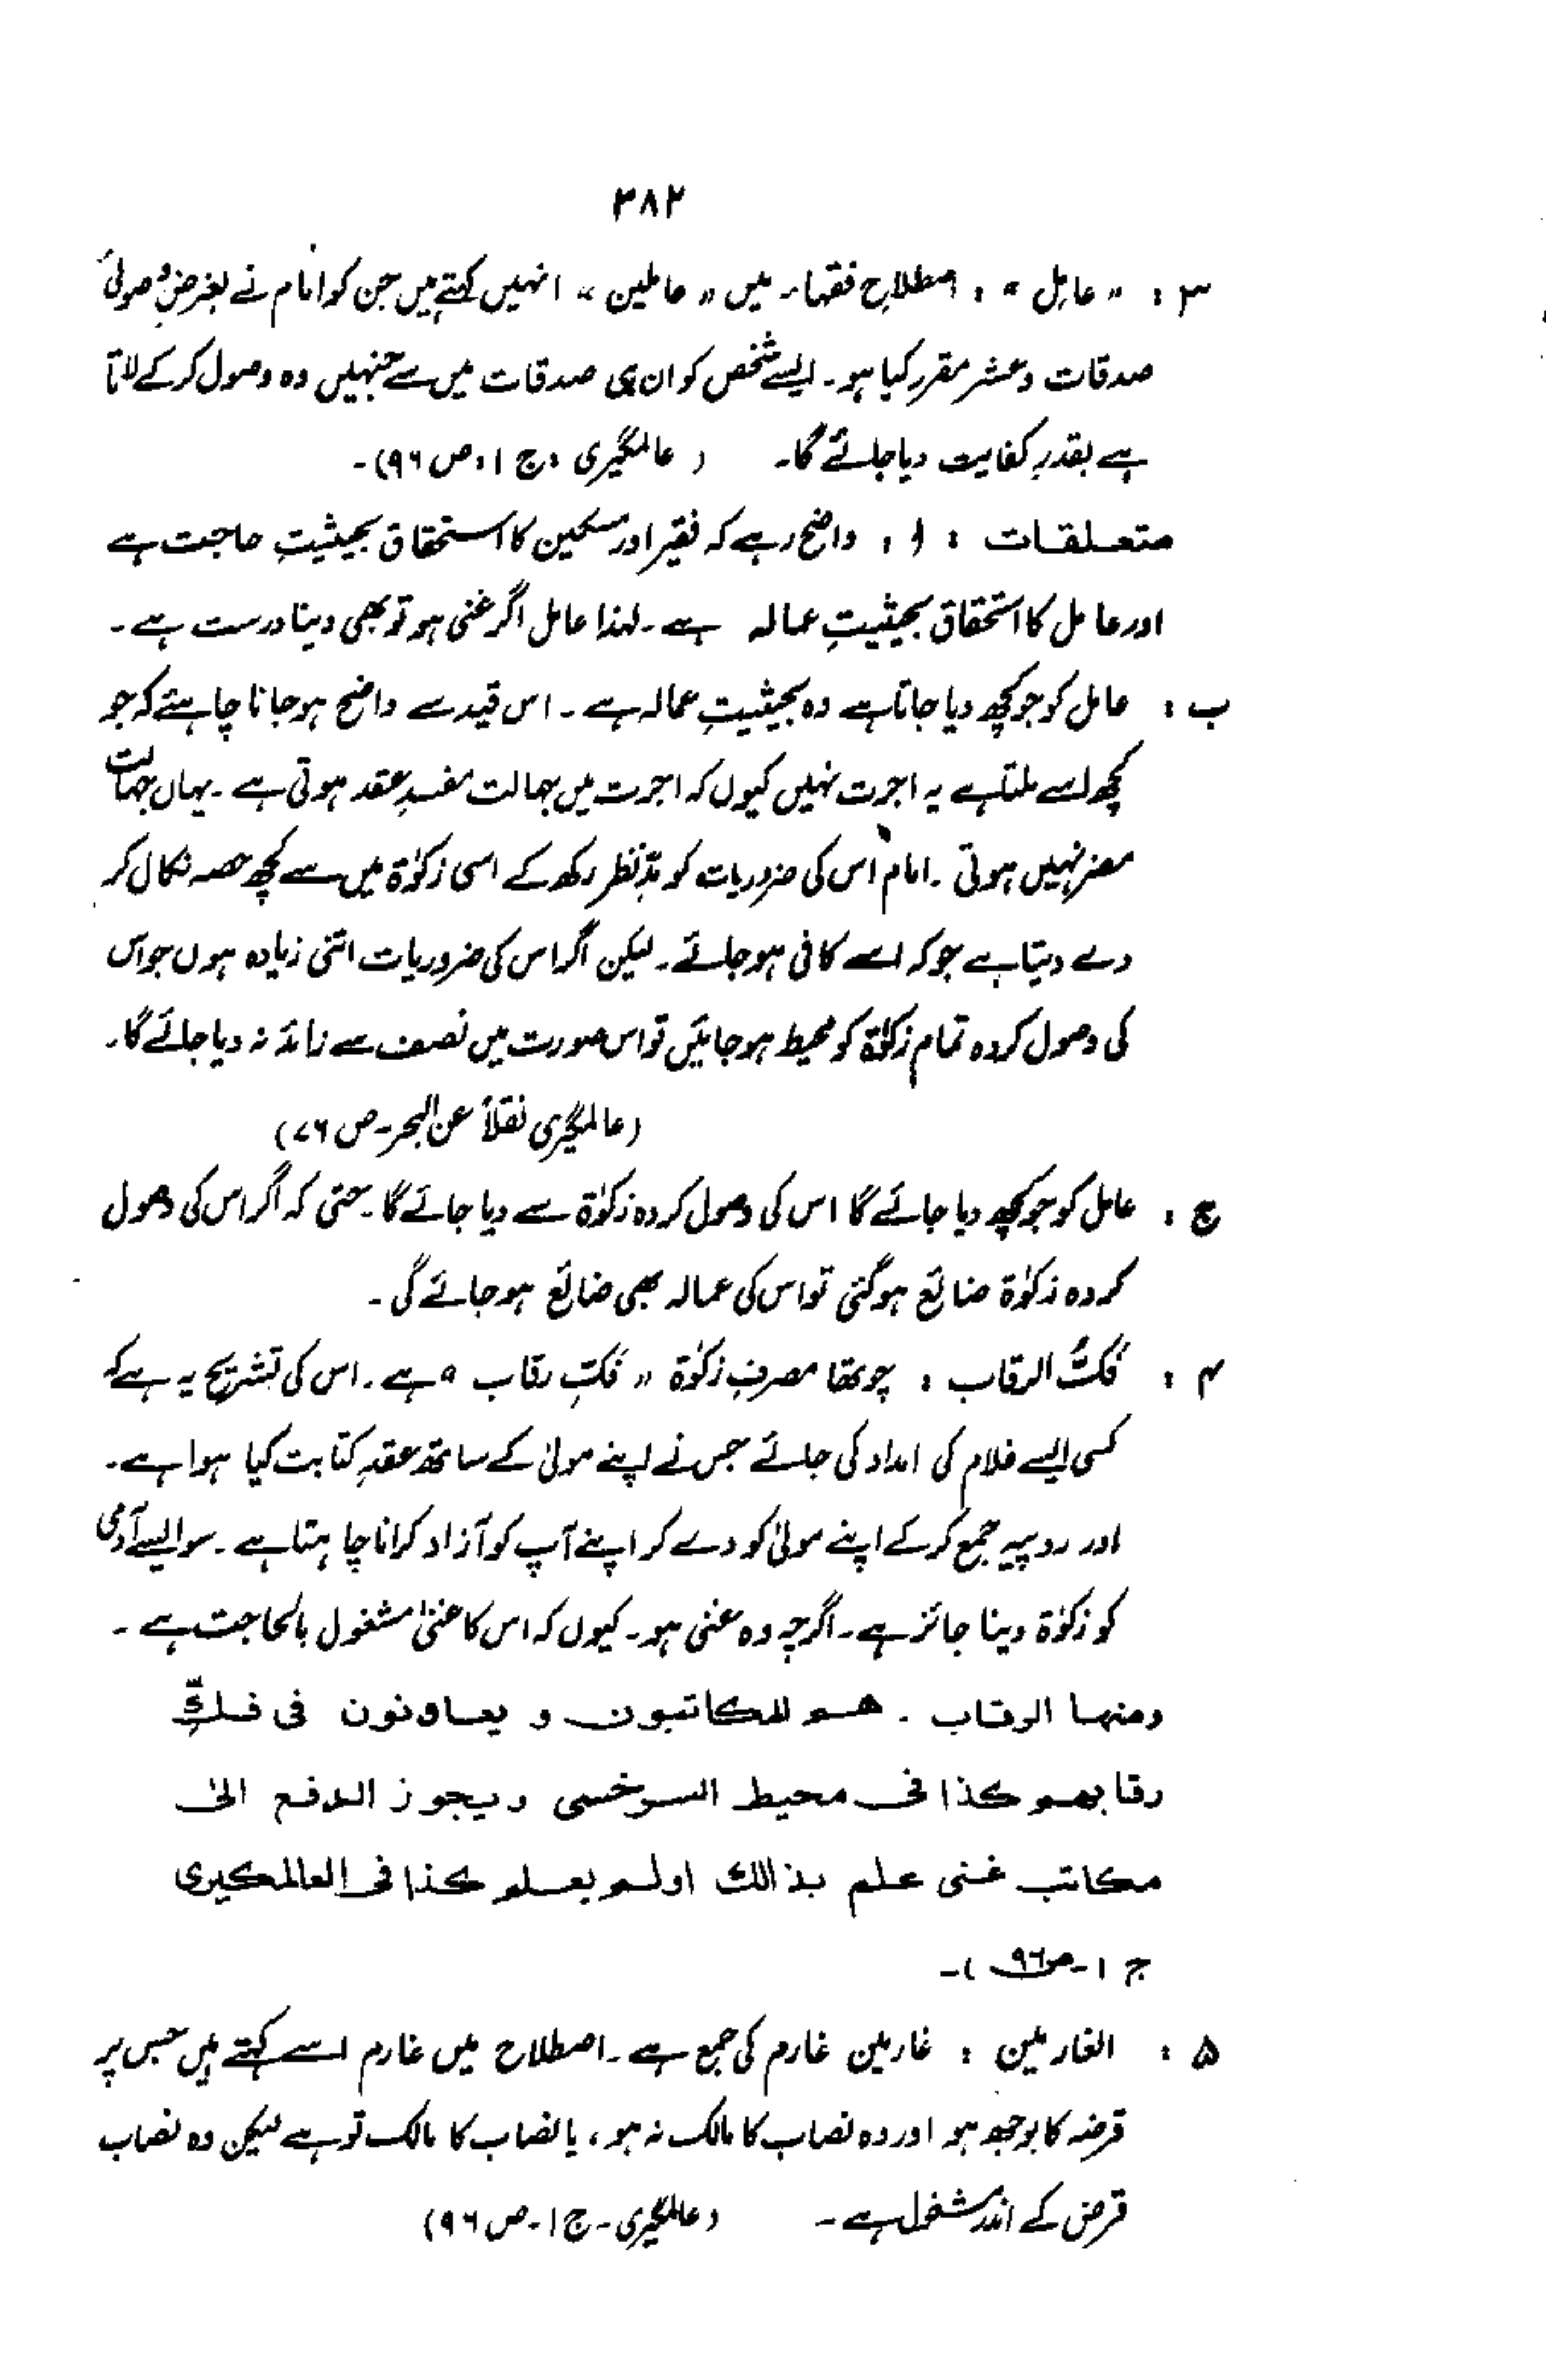 ۳۸۲
۳ : " عامل " : اصطلاحِ فقہاء میں " عاملین " انہیں کہتے ہیں جن کو امام نے بغرضِ وصولیٔ
صدقات و عشر مقرر کیا ہو۔ ایسے شخص کو ان ہی صدقات میں سے جنہیں وہ وصول کر کے لاتا
ہے بقدرِ کفایت دیا جائے گا۔ ( عالمگیری : ج ۱ : ص ۹۶)۔
متعلقات : ا : واضح رہے کہ فقیر اور مسکین کا استحقاق بحیثیتِ حاجت ہے
اور عامل کا استحقاق بحیثیتِ عمالہ ہے۔ لہذا عامل اگر غنی ہو تو بھی دینا درست ہے۔
ب : عامل کو جو کچھ دیا جاتا ہے وہ بحیثیتِ عمالہ ہے۔ اس قید سے واضح ہو جانا چاہیئے کہ جو
کچھ اسے ملتا ہے یہ اجرت نہیں کیوں کہ اجرت میں جہالت مفسدِ عقد ہوتی ہے۔ یہاں جہالت
مضر نہیں ہوتی ۔ امام اس کی ضروریات کو مدِّ نظر رکھ کے اسی زکوٰۃ میں سے کچھ حصہ نکال کر
دے دیتا ہے جو کہ اسے کافی ہو جائے۔ لیکن اگر اس کی ضروریات اتنی زیادہ ہوں جو اس
کی وصول کردہ تمام زکوٰۃ کو محیط ہو جائیں تو اس صورت میں نصف سے زائد نہ دیا جائے گا۔
(عالمگیری نقلاً عن البحر۔ ص ۷۶)
ج : عامل کو جو کچھ دیا جائے گا اس کی وصول کردہ زکوٰۃ سے دیا جائے گا۔ حتی کہ اگر اس کی وصول
کردہ زکوٰۃ ضائع ہو گئی تو اس کی عمالہ بھی ضائع ہو جائے گی ۔
۴ : فَکُّ الرقاب : چوتھا مصرفِ زکوٰۃ " فَکِّ رقاب " ہے۔ اس کی تشریح یہ ہے کہ
کسی ایسے غلام کی امداد کی جائے جس نے اپنے مولیٰ کے ساتھ عقدِ کتابت کیا ہوا ہے۔
اور روپیہ جمع کر کے اپنے مولیٰ کو دے کر اپنے آپ کو آزاد کرانا چاہتا ہے۔ سو ایسے آدمی
کو زکوٰۃ دینا جائز ہے۔ اگرچہ وہ غنی ہو۔ کیوں کہ اس کا غنیٰ مشغول بالحاجت ہے ۔
ومنها الرقاب . هم المكاتبون و يعاونون فى فكِّ
رقابهم كذا فى محيط السرخسى ويجوز الدفع الى
مكاتب غنى علم بذالك اولم يعلم كذا فى العالمكيرى
ج ۱ ۔ ص۹۶ )۔
۵ : الغارمین : غارمین غارم کی جمع ہے۔ اصطلاح میں غارم اسے کہتے ہیں جس پر
قرضہ کا بوجھ ہو اور وہ نصاب کا مالک نہ ہو، یا نصاب کا مالک تو ہے لیکن وہ نصاب
قرض کے اندر مشغول ہے ۔ (عالمگیری ۔ ج ۱ ۔ ص ۹۶)